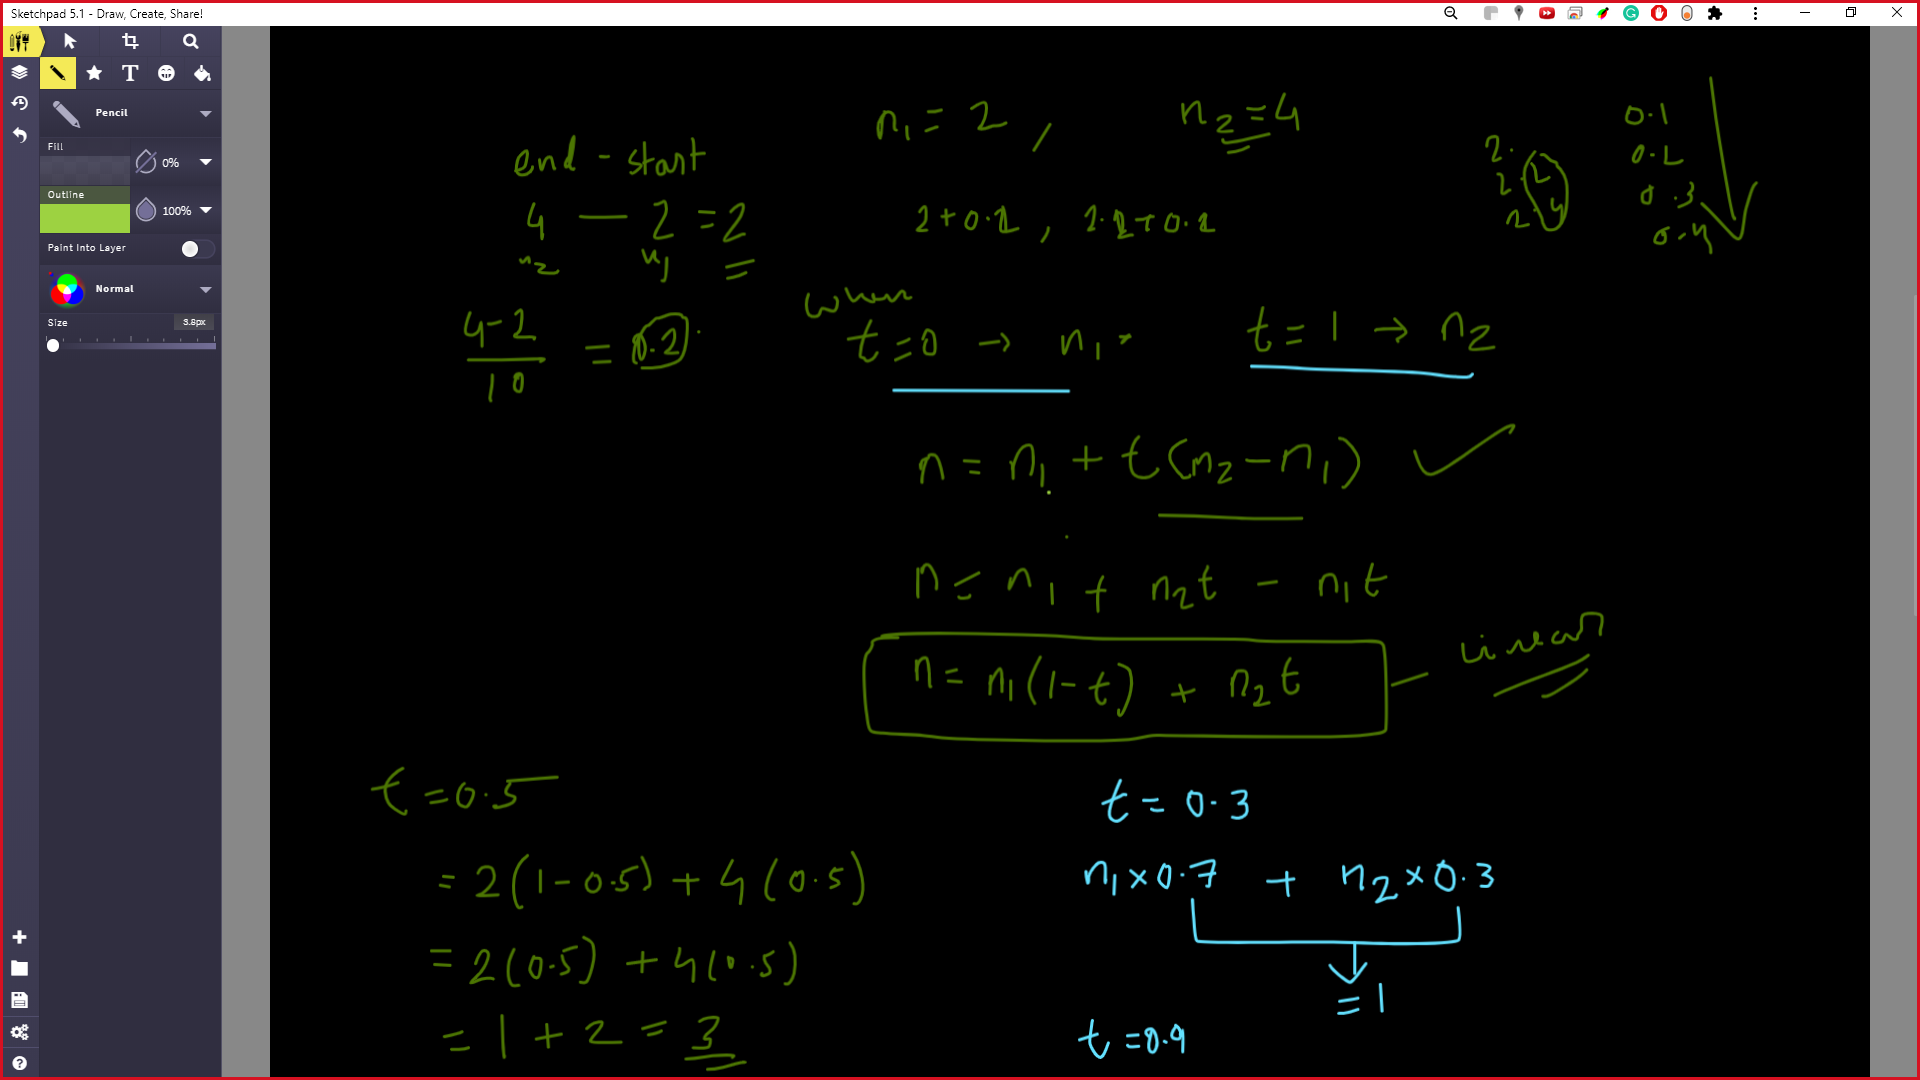 Sketchpad 5.1 - Draw, Create, Share!
Pencil
Fill
0%
Outline
100%
Paint Into Layer
Normal
Size 3.8px
n₁ = 2 , n₂ = 4
end - start
4 — 2 = 2
n₂ n₁
2 + 0.2 , 2.2 + 0.2
2.
2.2
2.4
0.1
0.2
0.3
0.4
4-2
10
= 0.2
when
t = 0 → n₁
t = 1 → n₂
n = n₁ + t(n₂ - n₁)
n = n₁ + n₂t - n₁t
n = n₁(1-t) + n₂t - linear
t = 0.5
= 2(1 - 0.5) + 4(0.5)
= 2(0.5) + 4(0.5)
= 1 + 2 = 3
t = 0.3
n₁ × 0.7 + n₂ × 0.3
= 1
t = 0.9